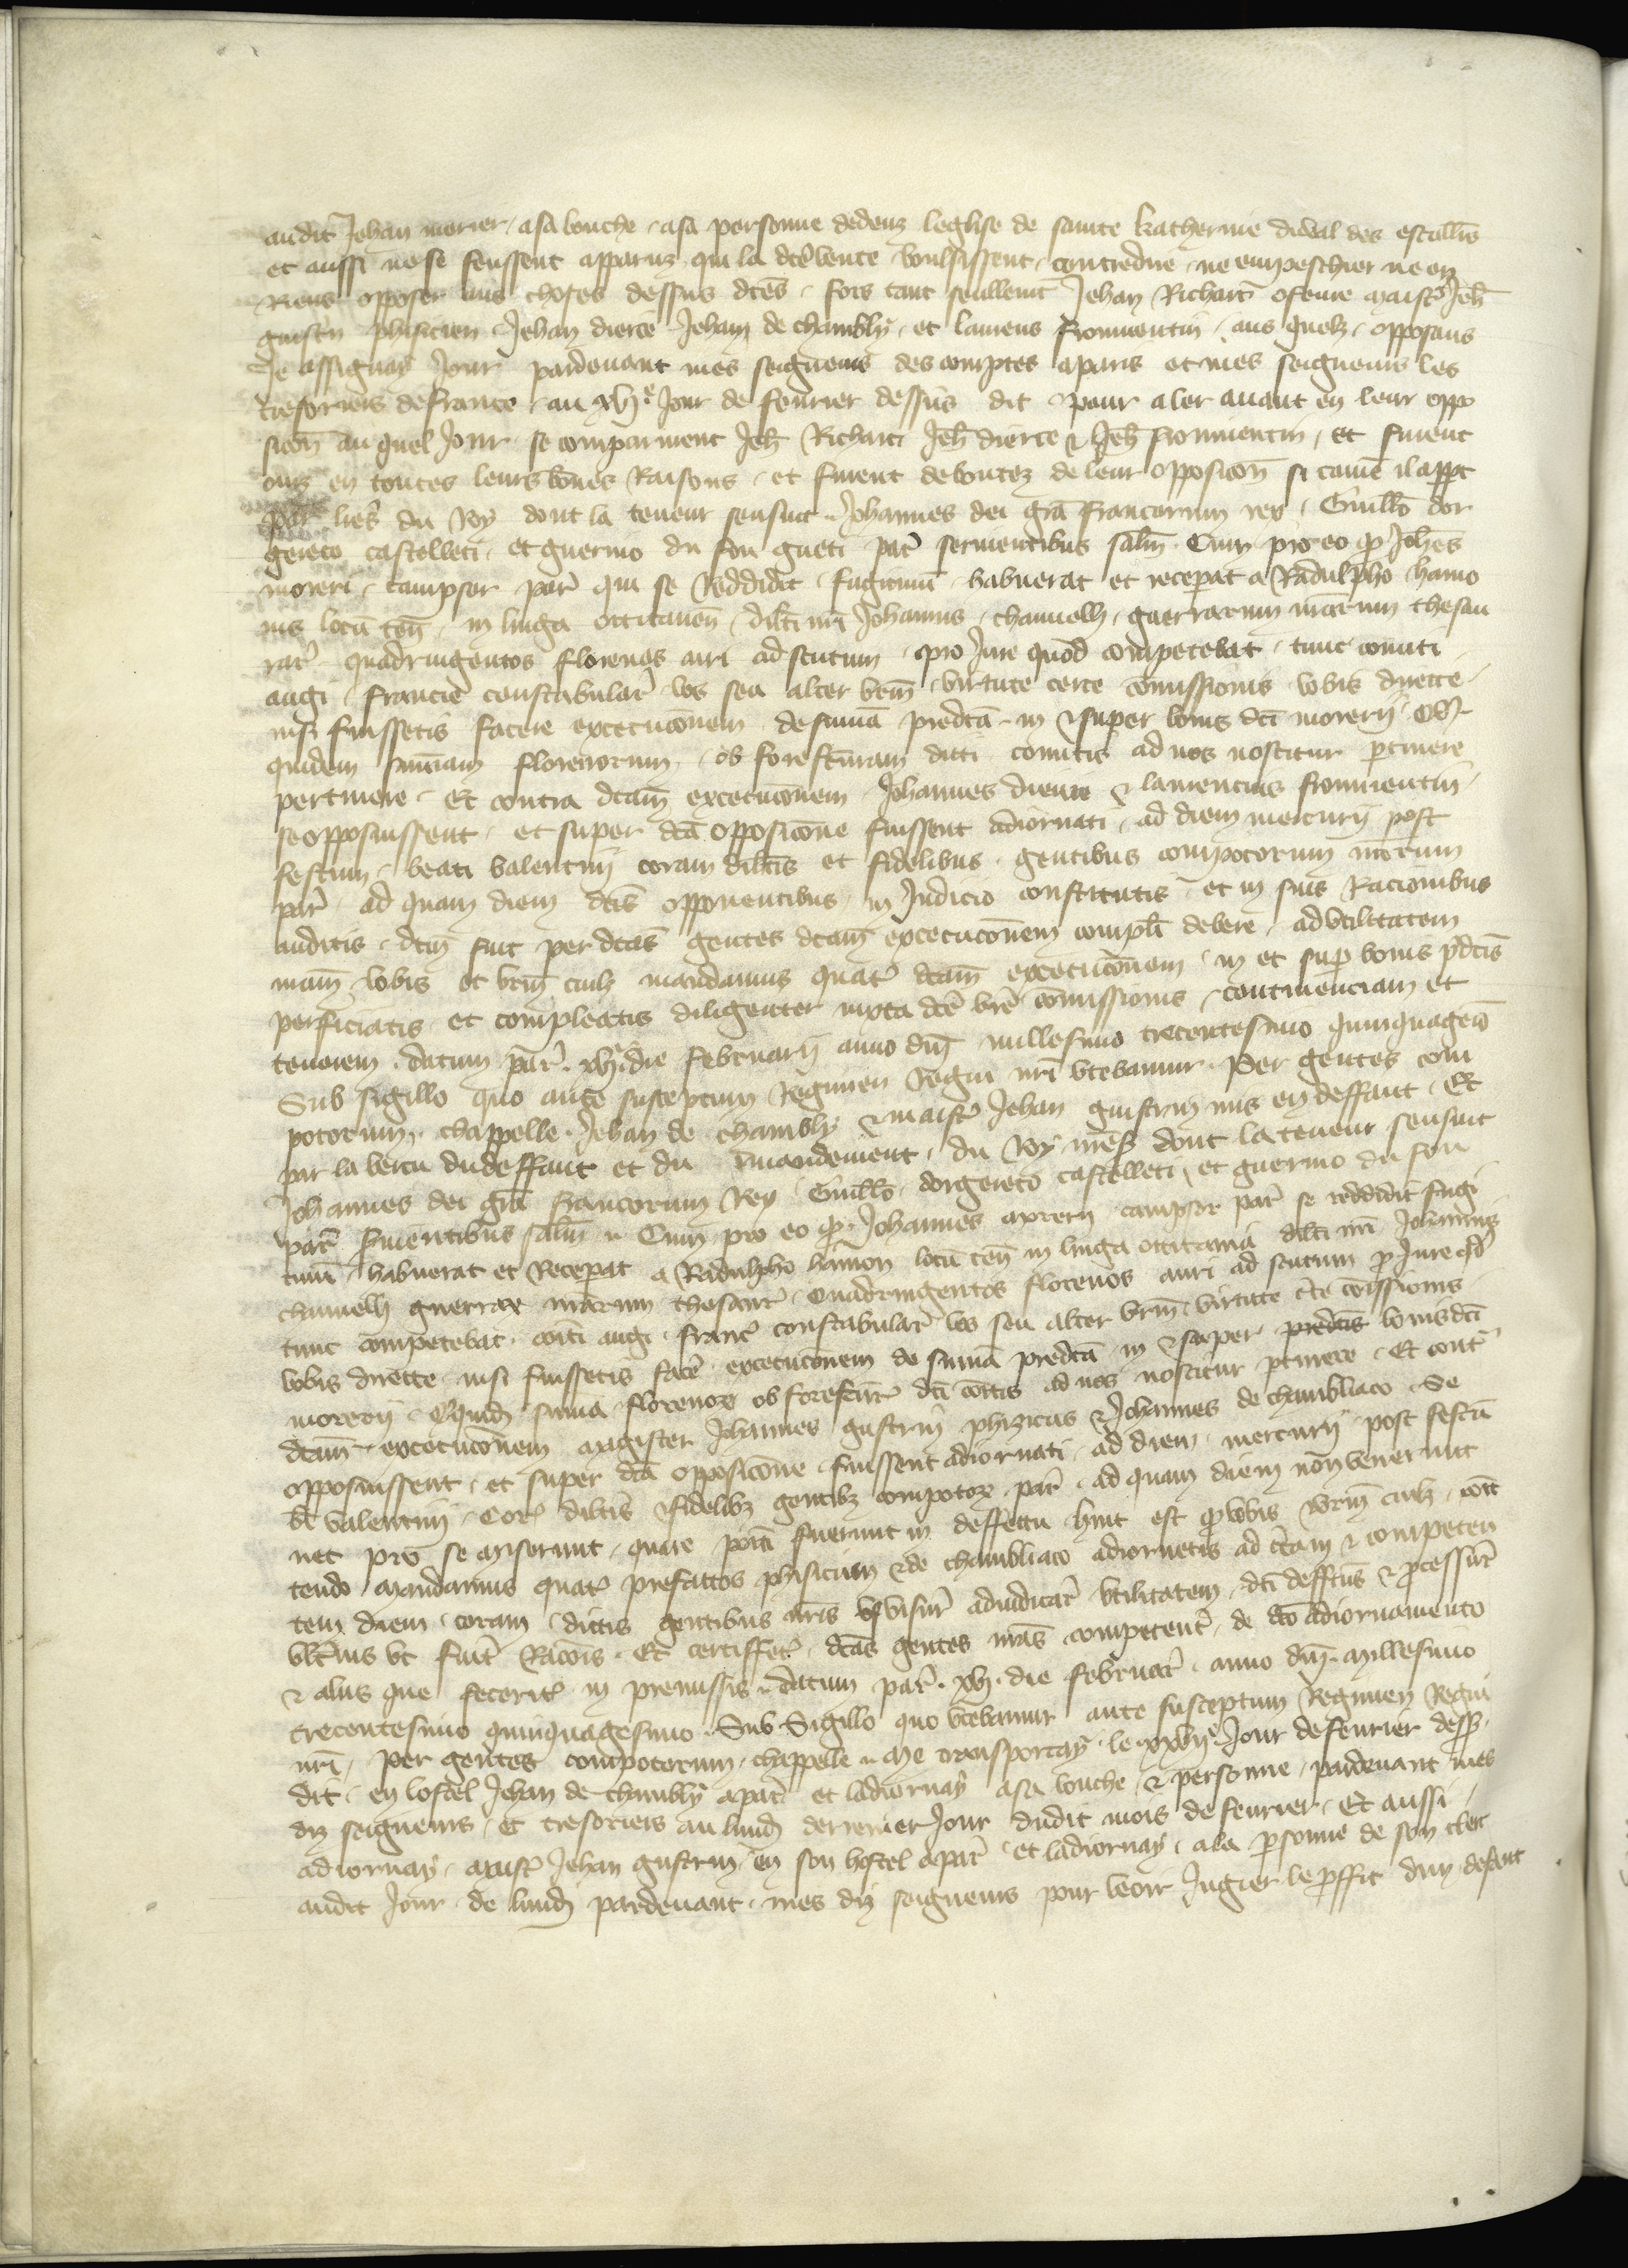 audit Jehan morier a sa bouche a sa personne dedenz leglise de sainte Katherine du val des escolliers
et aussi ne se feussent apparuz qui la dicte vente voulsissent contredire ne empeschier ne en
Riens opposer aus choses dessus dictes fors tant seullement Jehan Richart ofevre maistre Jeh
guistrin phisicien Jehan dierre Jehan de chambly et laurens fromentin aus quelz opposans
Je assignay Jour pardevant mes seigneurs des comptes a paris et mes seigneurs les
tresoriers de france au xvi.e Jour de fevrier dessus dit pour aler avant en leur oppo
sicion au quel Jour se comparurent Jeh Richart Jeh dierre & Jeh fromentin et furent
ouiz en toutes leurs bones Raisons et furent deboutez de leur opposicion si comme il appert
par lres du Roy dont la teneur sensuit Johannes dei gra francorum rex Guillo dor
gereto castelleti et guerino du fou gueti par servientibus salm Cum pro eo q Johes
moreri campsor par qui se Reddidit fugitivum habuerat et receperat a Radulpho hamo
nis locum ten in linga occitaneñ dilcti nri Johannis chauvelli guerrarum nrarum thesau
rar quadringentos florenos auri ad scutum pro Jure quod competebat tunc comiti
augi francie constabular vos seu alter vrm virtute certe comissionis vobis directe
nisi fuissetis facere execucionem de summa predcta in & super bonis dci morerii Q
quidem summam florenorum ob forefcturam dicti comitis ad nos noscitur ptinere
pertinere Et contra dctam execucionem Johannes dierre & laurencius fromentin
se opposuissent et super dcta opposicione fuissent adiornati ad diem mercurii post
festum beati valentini coram dilctis et fidelibus gentibus compotorum nrorum
par ad quam diem dctis opponentibus in Judicio constitutis et in suis Racionibus
auditis dctm fuit per dctas gentes dctam execucionem compli debere ad utilitatem
nram vobis et vrm cuilz mandamus quatr dctam execucionem in et sup bonis pdctis
perficiatis et compleatis diligenter iuxta dcte vre comissionis continenciam et
tenorem datum par xvi die februarii anno dni millesimo trecentesimo quinquagesimo
Sub sigillo quo ante susceptum Regimen Regni nri utebamur Per gentes com
potorum chappelle Jehan de chambly & maistre Jehan guistrin mis en deffaut Et
par la vertu du deffaut et du mandement du Roy nres dont la teneur sensuit
Johannes dei gra francorum Rex Guillo dorgereto castelleti et guerino du fou
par servientibus salm Cum pro eo q Johannes morerii campsor par se reddidit fugi
tivum habuerat et Receperat a Radulpho hamon locum ten in linga occitania dilcti nri Johannis
chauvelli guerrarum nrarum thesaur Quadringentos florenos auri ad scutum p Jure qd
tunc competebat comiti augi franc constabular vos seu alter vrm virtute cte comissionis
vobis directe nisi fuissetis facere execucionem de summa predcta in & super predctis bonis dci
morerii Ququidem summa florenorum ob forefctur dci comitis ad nos noscitur ptinere Et contr
dctam execucionem magister Johannes guistrin phizicus & Johannes de chambliaco Se
opposuissent et super dcta opposicione fuissent adiornati ad diem mercurii post festum
bti valentini Cor dilctis & fidelibz gentibz compotorum par ad quam diem non venerunt
nec pro se miserunt quare positi fuerunt in deffectu hinc est q vobis vrm cuilz comit
tendo mandamus quatr prefactos phisicum & de chambliaco adiornetis ad ctam & competen
tem diem coram dictis gentibus nris visur adiudicar utilitatem dci deffctus & processur
ulterius ut fuit Racionis Et certiffect dctas gentes nras competenter de dcto adiornamento
& aliis que feceritis in premissis datum par xvi die februar anno dni millesimo
trecentesimo quinquagesimo Sub Sigillo quo utebamur ante susceptum Regimen Regni
nri Per gentes compotorum chappelle Me transportay le xxvi.e Jour de fevrier dessus
dit en lostel Jehan de chambly a par et ladiornay a sa bouche & personne pardevant mes
diz seigneurs et tresoriers au lundi derrenier Jour dudit mois de fevrier Et aussi
adiornay maistre Jehan guistrin en son hostel a par et ladiornay a la personne de son clerc
audit Jour de lundi pardevant mes diz seigneurs pour veoir Jugier le proffit dun defaut